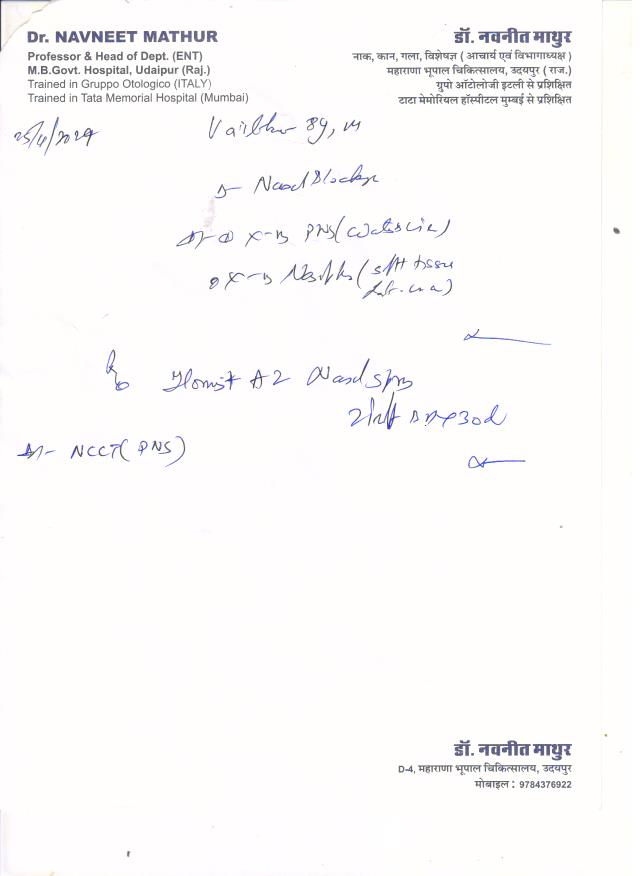 Dr. NAVNEET MATHUR
Professor & Head of Dept. (ENT)
M.B.Govt. Hospital, Udaipur (Raj.)
Trained in Gruppo Otologico (ITALY)
Trained in Tata Memorial Hospital (Mumbai)
डॉ. नवनीत माथुर
नाक, कान, गला, विशेषज्ञ ( आचार्य एवं विभागाध्यक्ष )
महाराणा भूपाल चिकित्सालय, उदयपुर ( राज.)
ग्रुपो ऑटोलोजी इटली से प्रशिक्षित
टाटा मेमोरियल हॉस्पीटल मुम्बई से प्रशिक्षित
25/4/2024
Vaibhav 8y, M
Nasal Blockage
X-Ray PNS (Waters view)
X-Ray (soft tissue
Nasal Spray
NCCT (PNS)
डॉ. नवनीत माथुर
D-4, महाराणा भूपाल चिकित्सालय, उदयपुर
मोबाइल : 9784376922